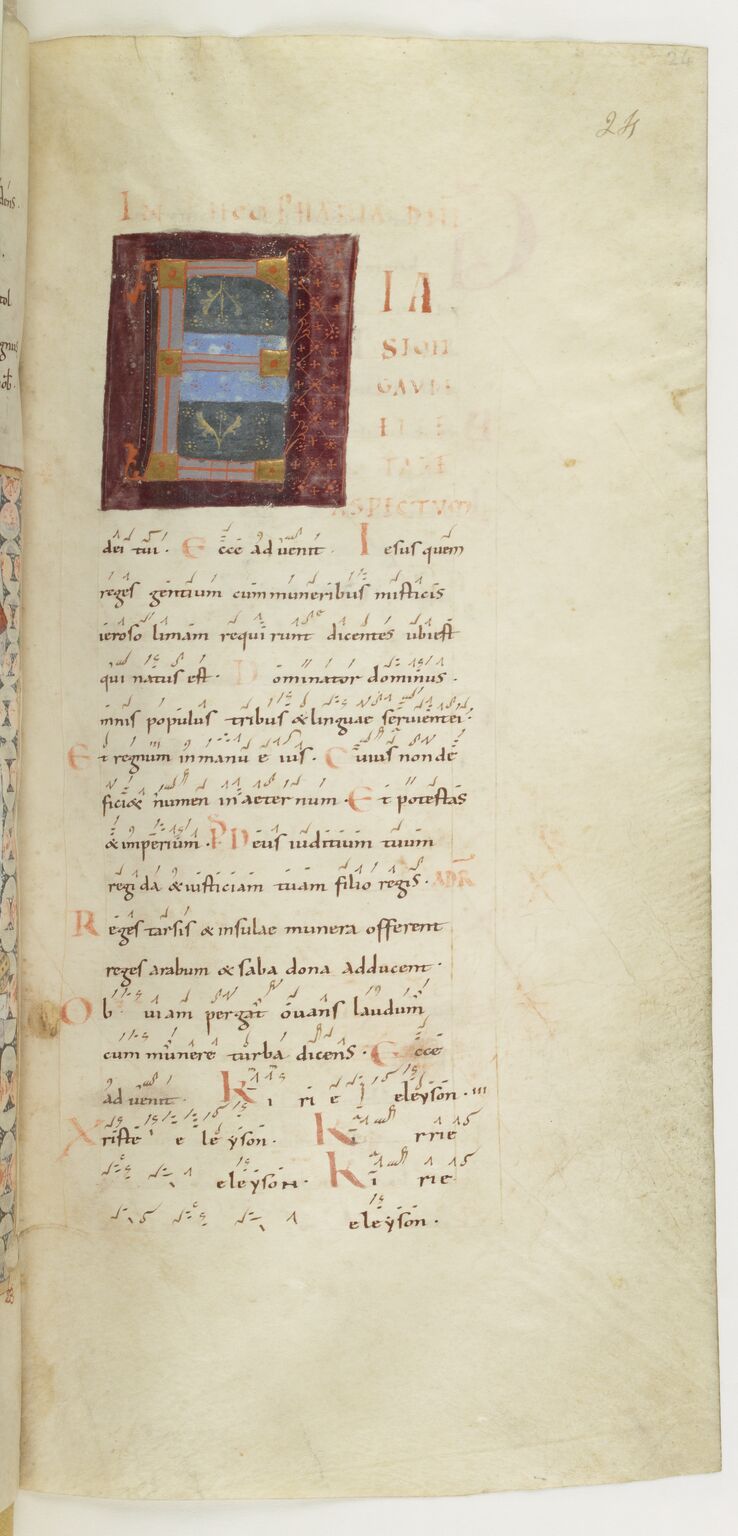 24
24
IA
SION
GAVDE
ASPECTVM
dei tui. Ecce advenit. Iesus quem
reges gentium cum muneribus misticis
ieroso limam requi runt dicentes ubi est
qui natus est. Dominator dominus.
mnis populus tribus & linguae servient ei.
Et regnum in manu e ius. Cuius non de
fici& numen in aeter num. Et potestas
& imperium. Ps Deus iuditium tuum
regi da & iusticiam tuam filio regis. AD R
Reges tarsis & insulae munera offerent
reges arabum & saba dona adducent.
Ob viam pergat ovans laudum
cum munere turba dicens. Ecce
advenit. Ki ri e eleyson. iii
Xriste e le yson. Ki rrie
eleyson. Ki rie
eleyson.